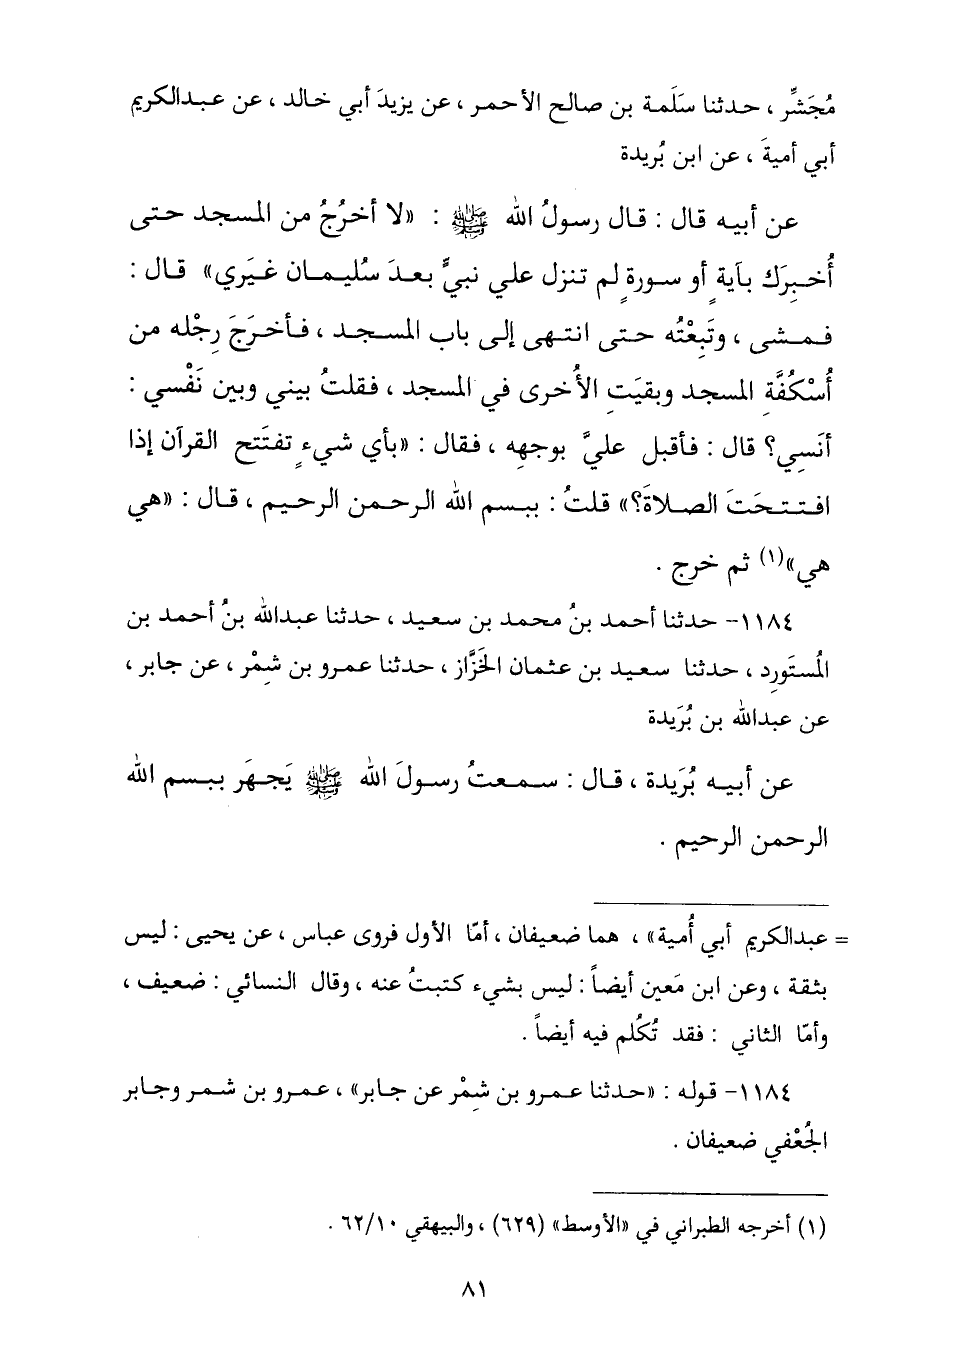 مُجَشِّر ، حدثنا سَلَمة بن صالح الأحمر ، عن يزيدَ أبي خالد ، عن عبدالكريم
أبي أميةَ ، عن ابن بُريدة
عن أبيه قال : قال رسولُ الله ﷺ : «لا أخرُجُ من المسجد حتى
أُخبِرَك بآيةٍ أو سورةٍ لم تنزل علي نبيٍّ بعدَ سُليمان غيَري» قال :
فمشى ، وتَبِعْتُه حتى انتهى إلى باب المسجد ، فأخرَجَ رِجْله من
أُسْكُفَّة المسجد وبقيَتِ الأُخرى في المسجد ، فقلتُ بيني وبين نَفْسي :
أنَسِي؟ قال : فأقبل عليَّ بوجهِه ، فقال : «بأي شيءٍ تفتَتح القرآن إذا
افتتحَتَ الصلاةَ؟» قلتُ : ببسم الله الرحمن الرحيم ، قال : «هي
هي»(١) ثم خرج .
١١٨٤- حدثنا أحمد بنُ محمد بن سعيد ، حدثنا عبدالله بنُ أحمد بن
المُستَورِد ، حدثنا سعيد بن عثمان الخَزَّاز ، حدثنا عمرو بن شِمْر ، عن جابر ،
عن عبدالله بن بُرَيدة
عن أبيه بُرَيدة ، قال : سمعتُ رسولَ الله ﷺ يَجهَر ببسم الله
الرحمن الرحيم .
= عبدالكريم أبي أُمية» ، هما ضعيفان ، أمّا الأول فروى عباس ، عن يحيى : ليس
بثقة ، وعن ابن مَعين أيضاً : ليس بشيء كتبتُ عنه ، وقال النسائي : ضعيف ،
وأمّا الثاني : فقد تُكُلم فيه أيضاً .
١١٨٤- قوله : «حدثنا عمرو بن شِمْر عن جابر» ، عمرو بن شمر وجابر
الجُعْفي ضعيفان .
(١) أخرجه الطبراني في «الأوسط» (٦٢٩) ، والبيهقي ٦٢/١٠ .
٨١